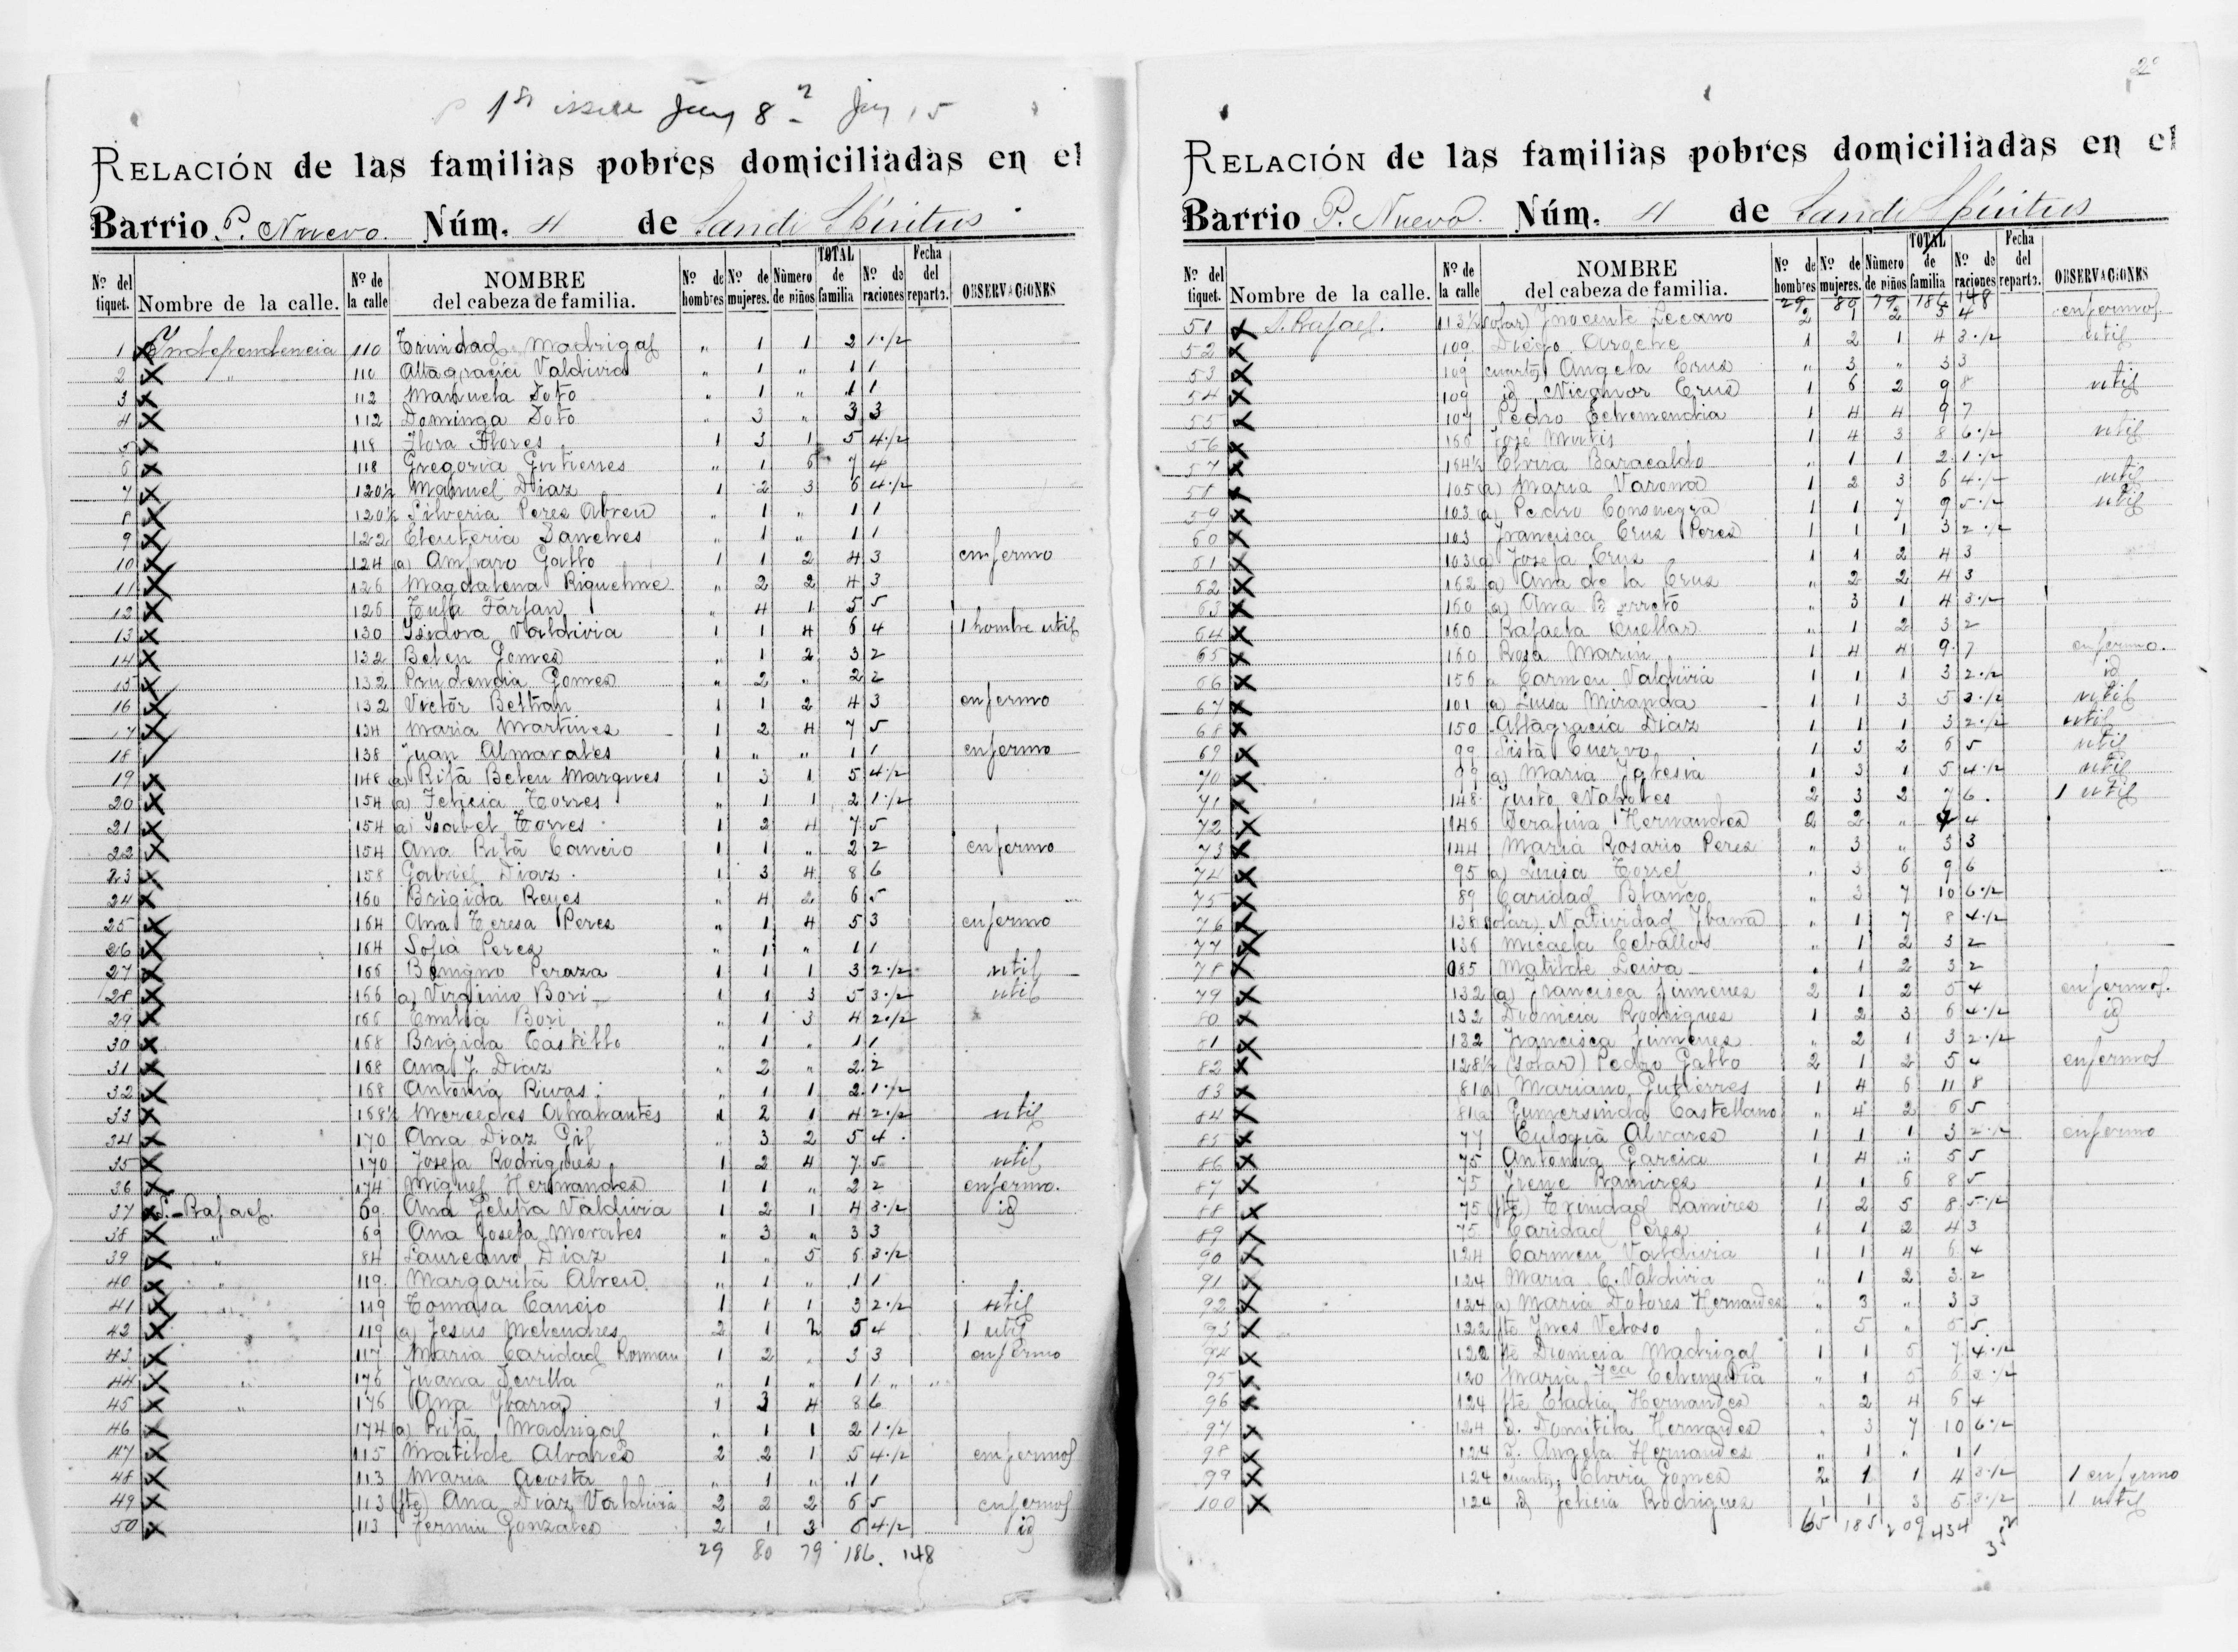 1st issue Jany 8 = Jany 15
RELACIÓN de las familias pobres domiciliadas en el
Barrio P. Nuevo. Núm. 4 de Sancti Spiritus
Nº del tiquet. Nombre de la calle. Nº de la calle NOMBRE del cabeza de familia. Nº de hombres Nº de mujeres. Número de niños TOTAL de familia Nº de raciones Fecha del reparto. OBSERVACIONES
1 X Independencia 110 Trinidad Madrigal " 1 1 2 1·1/2
2 X " 110 Altagracia Valdivia " 1 " 1 1
3 X 112 Manuela Soto " 1 " 1 1
4 X 112 Dominga Soto " 3 " 3 3
5 X 118 Flora Flores 1 3 1 5 4·1/2
6 X 118 Gregoria Gutierres " 1 6 7 4
7 X 120½ Manuel Diaz 1 2 3 6 4·1/2
8 X 120½ Silveria Perez Abreu " 1 " 1 1
9 X 122 Eleuteria Sanches " 1 " 1 1
10 X 124 (a) Amparo Gallo 1 1 2 4 3 enfermo
11 X 126 Magdalena Riquelme " 2 2 4 3
12 X 126 Tula Farfan " 4 1 5 5
13 X 130 Isidora Valdivia 1 1 4 6 4 1 hombre util
14 X 132 Belen Gomes " 1 2 3 2
15 X 132 Prudencia Gomes " 2 " 2 2
16 X 132 Victor Beltran 1 1 2 4 3 enfermo
17 X 134 Maria Martines 1 2 4 7 5
18 138 Juan Almarales 1 " " 1 1 enfermo
19 X 148 (a) Rita Belen Marques 1 3 1 5 4·1/2
20 X 154 (a) Felicia Torres " 1 1 2 1·1/2
21 X 154 (a) Isabel Torres 1 2 4 7 5
22 X 154 Ana Rita Cancio 1 1 " 2 2 enfermo
23 X 158 Gabriel Diaz 1 3 4 8 6
24 X 160 Brigida Reyes " 4 2 6 5
25 X 164 Ana Teresa Peres " 1 4 5 3 enfermo
26 X 164 Sofia Perez " 1 " 1 1
27 X 166 Benigno Peraza 1 1 1 3 2·1/2 util
28 X 166 (a) Virginio Bori 1 1 3 5 3·1/2 util
29 X 166 Emilia Bori " 1 3 4 2·1/2
30 X 168 Brigida Castillo " 1 " 1 1
31 X 168 Ana J. Diaz " 2 " 2 2
32 X 168 Antonia Rivas " 1 1 2 1·1/2
33 X 168½ Mercedes 1 2 1 4 2·1/2 util
34 X 170 Ana Diaz Gil " 3 2 5 4
35 X 170 Josefa Rodrigues 1 2 4 7 5 util
36 X 174 Miguel Hernandes 1 1 " 2 2 enfermo.
37 X S. Rafael. 69 Ana Felipa Valdivia 1 2 1 4 3·1/2 id
38 X " 69 Ana Josefa Morales " 3 " 3 3
39 X " 84 Laureano Diaz 1 " 5 6 3·1/2
40 X " 119 Margarita Abreu " 1 " 1 1
41 X " 119 Tomasa Cancio 1 1 1 3 2·1/2 util
42 X " 119 (a) Jesus Melendres 2 1 2 5 4 1 util
43 X 117 Maria Caridad Roman 1 2 " 3 3 enfermo
44 X " 176 Juana Sevilla " 1 " 1 1 " "
45 X " 176 Ana Ybarra 1 3 4 8 6
46 X 174 (a) Rita Madrigal " 1 1 2 1·1/2
47 X 115 Matilde Alvares 2 2 1 5 4·1/2 enfermos
48 X 113 Maria Acosta " 1 " 1 1
49 X 113 (fte) Ana Diaz Valdivia 2 2 2 6 5 enfermos
50 X 113 Fermin Gonzales 2 1 3 6 4·1/2 id
29 80 79 186. 148
2º
RELACIÓN de las familias pobres domiciliadas en el
Barrio P. Nuevo. Núm. 4 de Sancti Spiritus
Nº del tiquet. Nombre de la calle. Nº de la calle NOMBRE del cabeza de familia. Nº de hombres Nº de mujeres. Número de niños TOTAL de familia Nº de raciones Fecha del reparto. OBSERVACIONES
29 80 79 186 148
51 X S. Rafael. 113½ (solar) Inocente Lezcano 2 1 2 5 4 enfermos.
52 X 109 Diego Aroche 1 2 1 4 3·1/2 util
53 X 109 cuarto, Angela Crus " 3 " 3 3
54 X 109 id Nicanor Crus 1 6 2 9 8 util
55 X 107 Pedro Echemendia 1 4 4 9 7
56 X 160 José 1 4 3 8 6·1/2 util
57 X 164½ Elvira Baracaldo " 1 1 2 1·1/2
58 X 105 (a) Maria Varona 1 2 3 6 4·1/2 util
59 X 103 (a) Pedro Consuegra 1 1 7 9 5·1/2 util
60 X 103 Francisca Crus Peres 1 1 1 3 2·1/2
61 X 103 (a) Josefa Crus 1 1 2 4 3
62 X 162 (a) Ana de la Crus " 2 2 4 3
63 X 160 (a) Ana Borroto " 3 1 4 3·1/2
64 X 160 Rafaela Cuellar " 1 2 3 2
65 X 160 Rosa Marin 1 4 4 9 7 enfermo.
66 X 156 a Carmen Valdivia 1 1 1 3 2·1/2 id
67 X 101 (a) Luisa Miranda 1 1 3 5 3·1/2 util
68 X 150 Altagracia Diaz 1 1 1 3 2·1/2 util
69 X 99 Sista Cuervo 1 3 2 6 5 util
70 X 99 (a) Maria Yglesia 1 3 1 5 4·1/2 util
71 X 148 Justo 2 3 2 7 6. 1 util
72 X 146 Serafina Hernandes 2 2 " 4 4
73 X 144 Maria Rosario Perez " 3 " 3 3
74 X 95 (a) Luisa " 3 6 9 6
75 X 89 Caridad Blanco " 3 7 10 6·1/2
76 X 138 (solar) Natividad Ybarra " 1 7 8 4·1/2
77 X 136 Micaela Ceballos " 1 2 3 2
78 X 85 Matilde Leiva " 1 2 3 2
79 X 132 (a) Francisca Jimenez 2 1 2 5 4 enfermos.
80 X 132 Dionicia Rodrigues 1 2 3 6 4·1/2 id
81 X 132 Francisca Jimenez " 2 1 3 2·1/2
82 X 128½ (solar) Pedro Gallo 2 1 2 5 4 enfermos
83 X 81 (a) Mariano Gutierres 1 4 6 11 8
84 X 81 (a) Gumersinda Castellano " 4 2 6 5
85 X 77 Eulogia Alvares 1 1 1 3 2·1/2 enfermo
86 X 75 Antonia Garcia 1 4 " 5 5
87 X 75 Irene Ramires 1 1 6 8 5
88 X 75 (fte) Trinidad Ramires 1 2 5 8 5·1/2
89 X 75 Caridad Peres 1 1 2 4 3
90 X 124 Carmen Valdivia 1 1 4 6 4
91 X 124 Maria C. Valdivia " 1 2 3 2
92 X 124 (a) Maria Dolores Hernandes " 3 " 3 3
93 X 122 fte Ynes Veloso " 5 " 5 5
94 X 122 fte Dionicia Madrigal 1 1 5 7 4·1/2
95 X 120 Maria Fca Echemendia " 1 5 6 3·1/2
96 X 124 fte Eladia Hernandes " 2 4 6 4
97 X 124 D. Domitila Hernandes " 3 7 10 6·1/2
98 X 124 D. Angela Hernandes " 1 " 1 1
99 X 124 cuarto, Elvira Gomes 2 1 1 4 3·1/2 1 enfermo
100 X 124 id Felicia Rodriguez 1 1 3 5 3·1/2 1 util
65 185 209 434